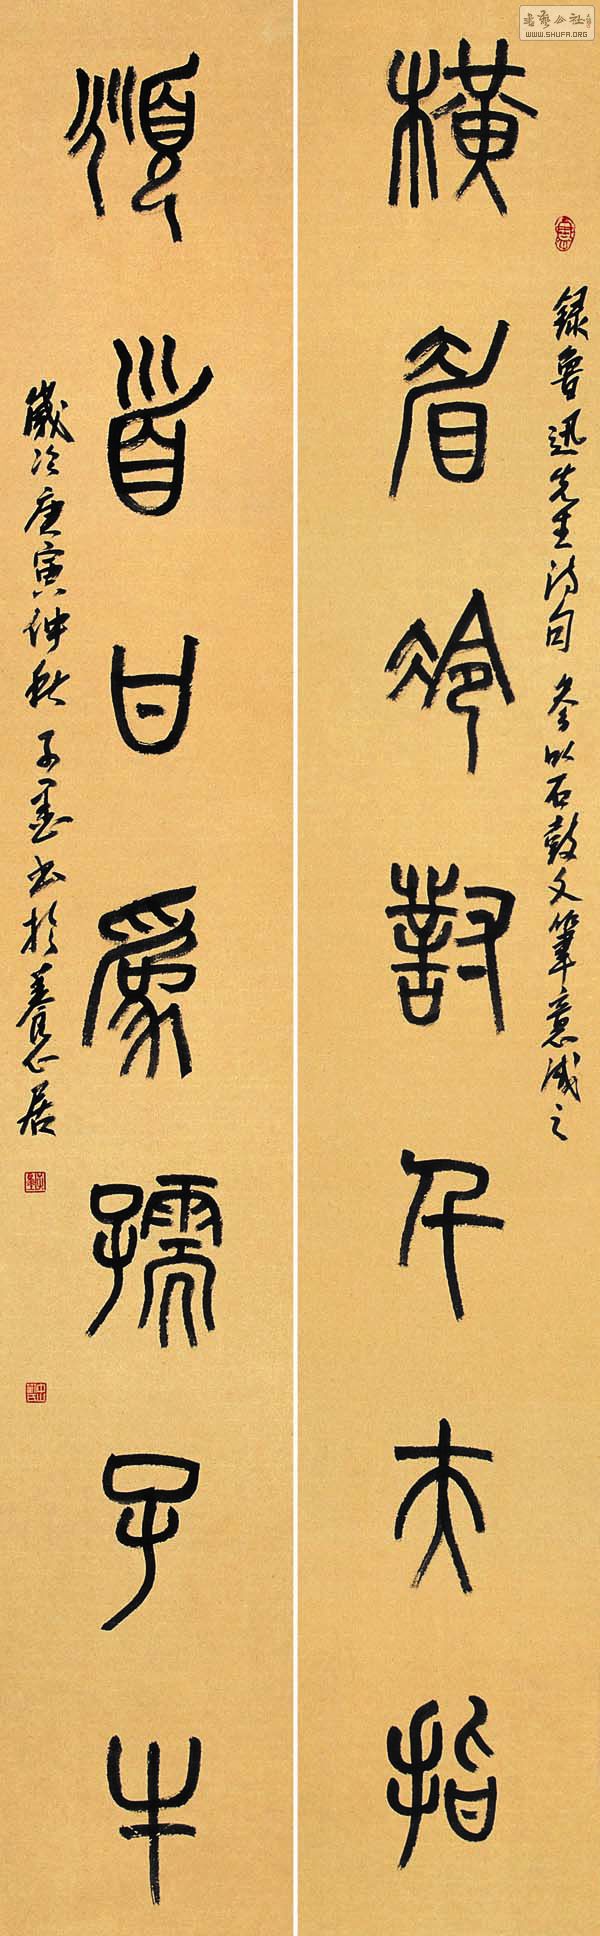 橫眉冷對千夫指
錄魯迅先生詩句 參以石鼓文筆意成之
頫首甘為孺子牛
歲次庚寅仲秋 子墨書於養心居
WWW.SHUFA.ORG